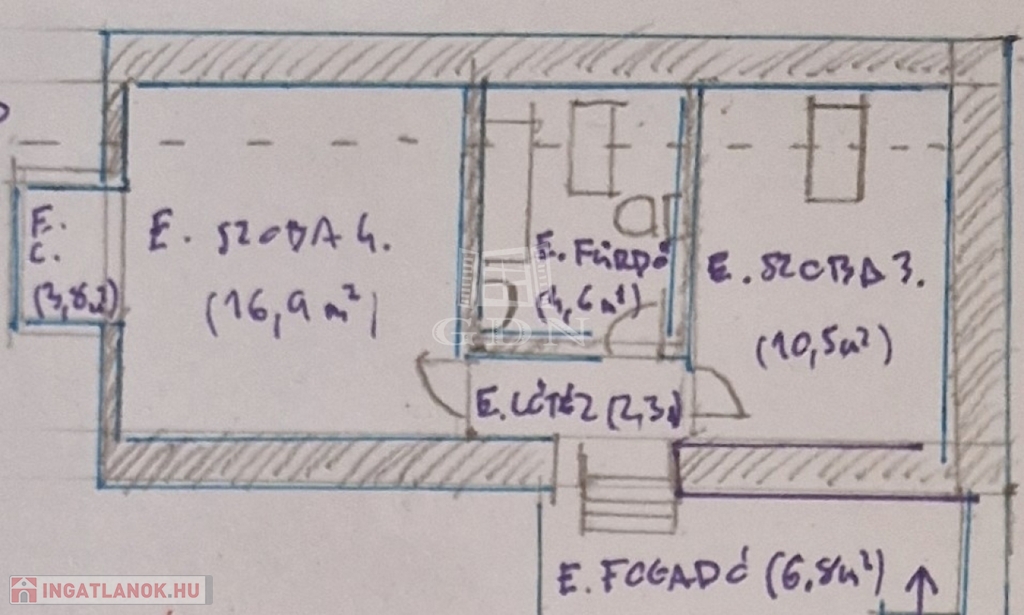 E.
C.
(3,8m²)
E. SZOBA 4.
(16,9 m²)
E. FÜRDŐ
(4,6m²)
E. SZOBA 3.
(10,5m²)
GDN
E. LÉTÉZ (2,3
E. FOGADÓ (6,8m²)
INGATLANOK.HU